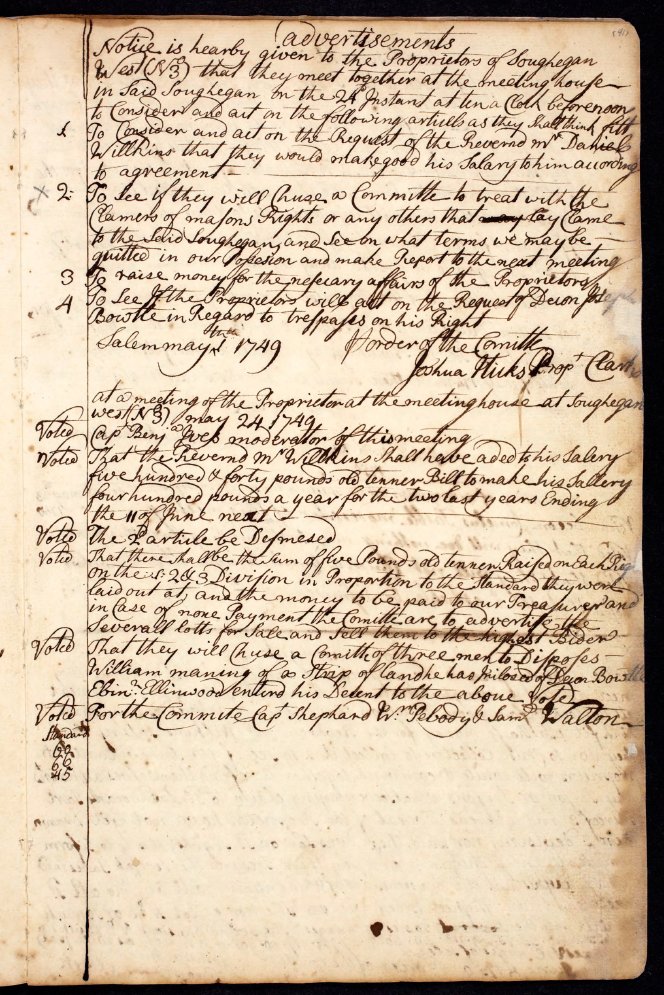 advertisements
Notice is hearby given to the Proprietors of Soughegan
West (No 3) that they meet together at the meeting house
in Said Soughegan on the 24th Instant at ten a Clock beforenoon
to Consider and act on the following articlls as they Shall think fitt
1. To Consider and act on the Request of the Reverend mr Daniel
Willkins that they would make good his Salary to him according
to agreement
x 2. To See if they will Chuse a Committe to treat with the
Clamers of masons Rights or any others that lay Clame
to the Said Soughegan and See on what terms we may be
quitted in our Possesion and make Report to the next meeting
3 To raise money for the nesecary affairs of the Proprietors
4 To See If the Proprietors will act on the Request of Decon Joseph
Bowtle in Regard to trespases on his Right
Salem may 1 1749 Pr order of the Comitte
Joshua Hicks Propt Clark
at a meeting of the Proprietor at the meeting house at Soughegan
west (No 3) may 24 1749
Voted Capt Benja Ives moderator of this meeting
Voted That the Revernd mr Willkins Shall have aded to his Salery
five hundred & forty pounds old tenner Bill to make his Sallery
four hundred pounds a year for the two last years Ending
the 11 of June next
Voted The 2 article be Dismesed
Voted That there shall be the Sum of five Pounds old tenner Raised on Each Rig
on the 1: 2 & 3 Division in Proportion to the Standard they were
laid out at, and the money to be paid to our Treasurer and
in Case of none Payment the Comitte are to advertise the
Severall lotts for Sale and Sell them to the highest Bider
Voted That they will Chuse a Comitte of three men to Disposes
William maning of a Strip of land he has of Decon Bowtle
Ebinr Ellinwood enterd his Decent to the above Vote
Voted For the Committe Capt Shephard Wm Pebody & Saml Walton
Standard
60
66
45